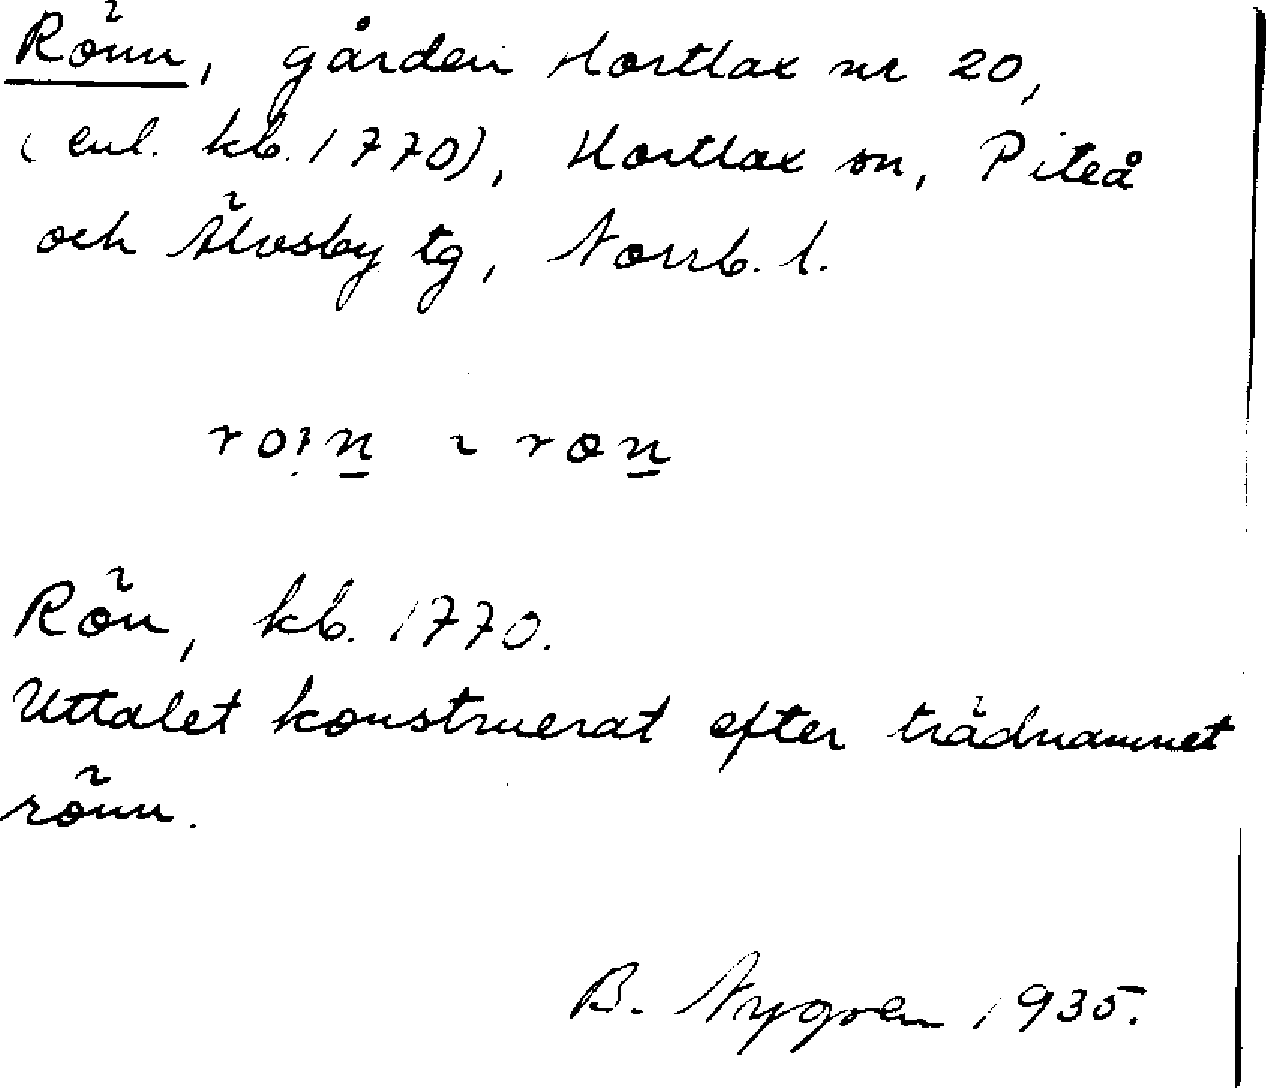 Rönn, gården Hortlax nr 20,
(enl. kb. 1770), Hortlax sn, Piteå
och Älvsby tg, Norrb. l.
Rön, kb. 1770.
Uttalet konstruerat efter trädnamnet
rönn.
B. Nygren 1935.